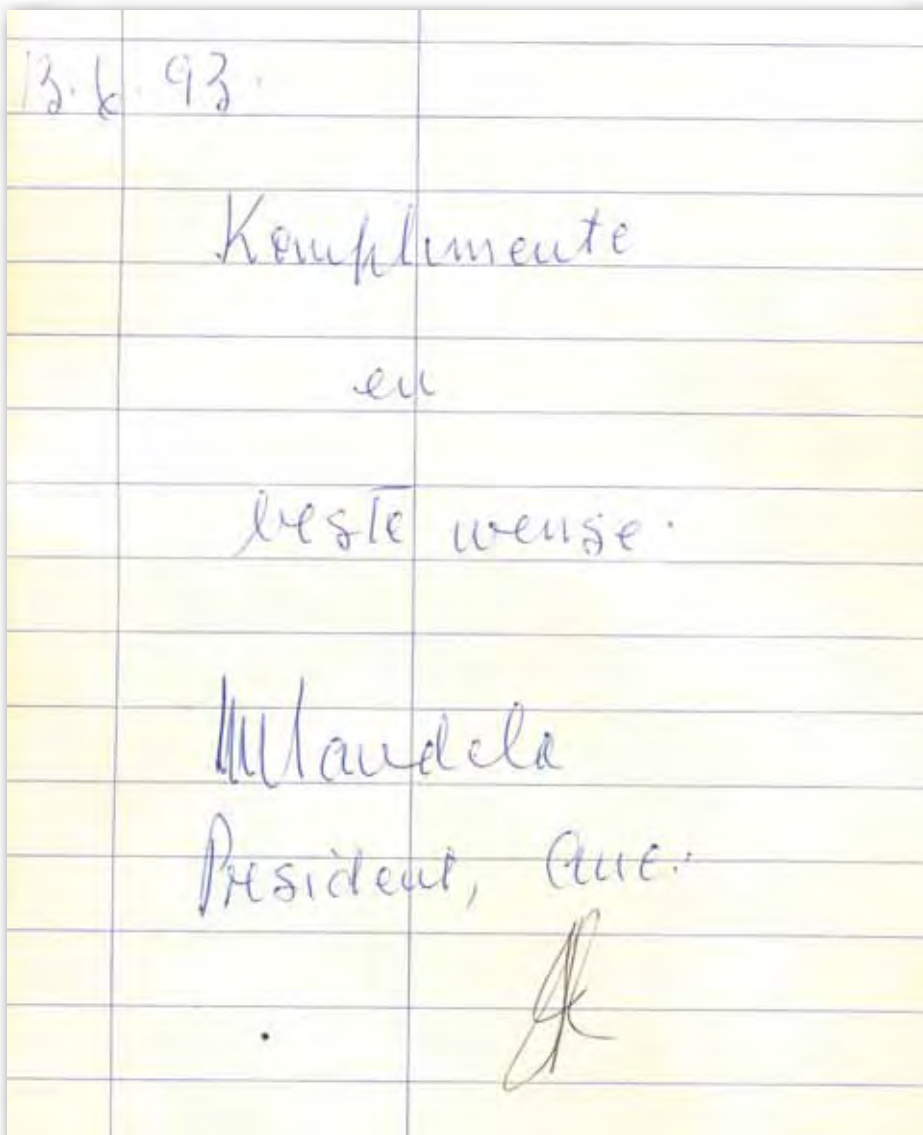 13.6.93.
Komplimente
en
beste wense.
NMandela
President, ANC.